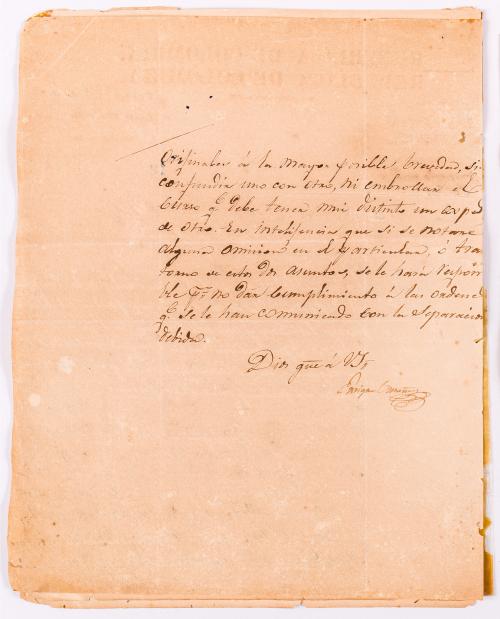 Originales á la mayor posible brevedad, si
confundir uno con otro, ni embrollar el
Curso q.e debe tener mui distinto un exp.e
de otro. En inteligencia que si se notare
alguna omision en el particular, ó tras
torno de estos dos asuntos, se le hara respon
ble p.r no dar cumplimiento á las ordene
q.e se le han comunicado con la separacion
debida.
Dios gue á V.
Enrique